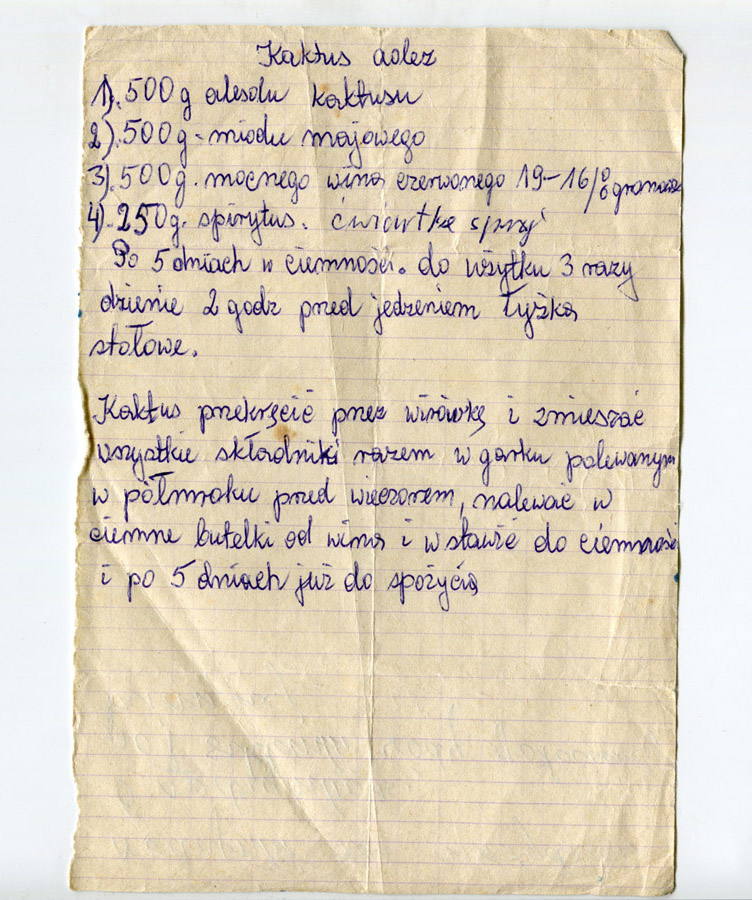 Kaktus aolez
1). 500 g alesolu kaktusu
2). 500 g - miodu majowego
3). 500 g. mocnego wina czerwonego 19-16/%
4). 250 g. spirytus. ćwiartkę
Po 5 dniach w ciemności. do użytku 3 razy
dzienie 2 godz przed jedzeniem łyżka
stołowe.
Kaktus przekręcić przez wirówkę i zmieszać
wszystkie składniki razem w garku polewanym
w półmroku przed wieczorem, nalewać w
ciemne butelki od wina i wstawić do ciemności
i po 5 dniach już do spożycia